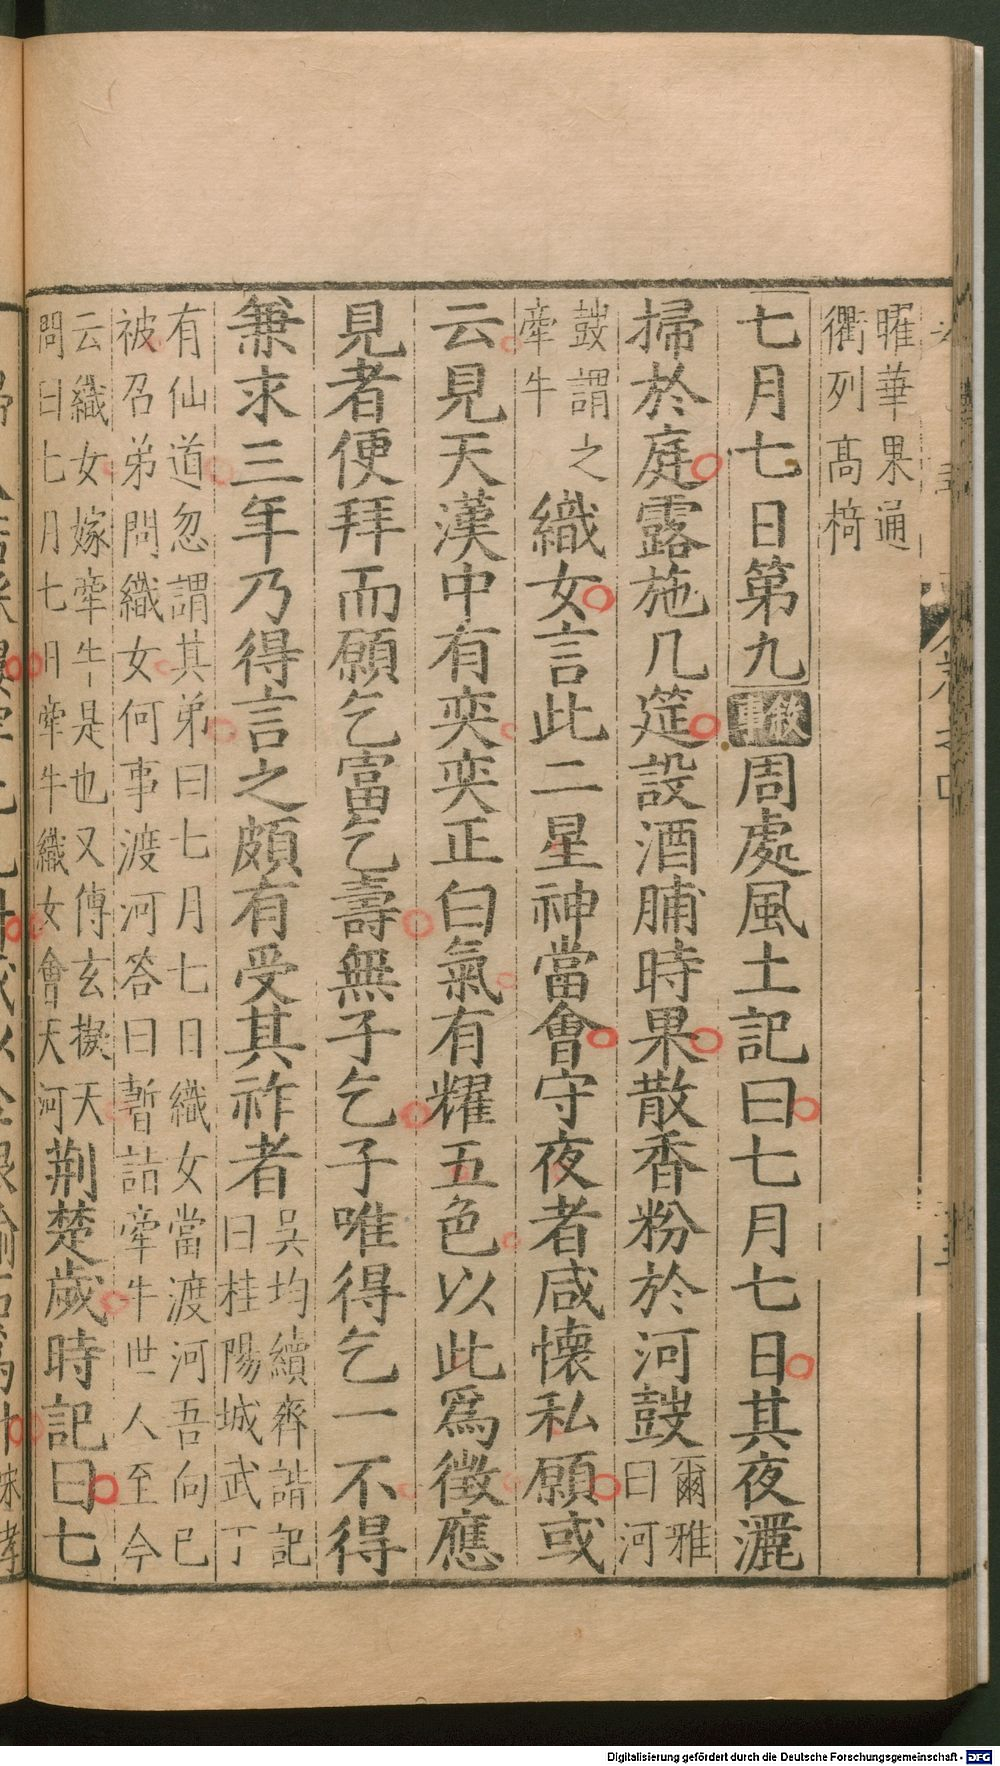 曜華果通
衢列髙𣗳
七月七日第九叙事周處風土記曰七月七日其夜灑
掃於庭露施几筵設酒脯時果散香粉於河鼓爾雅
曰河
鼓謂之
牽牛織女言此二星神當會守夜者咸懐私願或
云見天漢中有奕奕正白氣有耀五色以此爲徵應
見者便拜而願乞富乞壽無子乞子唯得乞一不得
兼求三年乃得言之頗有受其祚者吳均續齊諧記
曰桂陽城武丁
有仙道忽謂其弟曰七月七日織女當渡河吾向已
被召弟問織女何事渡河答曰暫詣牽牛世人至今
云織女嫁牽牛是也又傅玄擬天
問曰七月七日牽牛織女會天河荆楚歲時記曰七
Digitalisierung gefördert durch die Deutsche Forschungsgemeinschaft - DFG